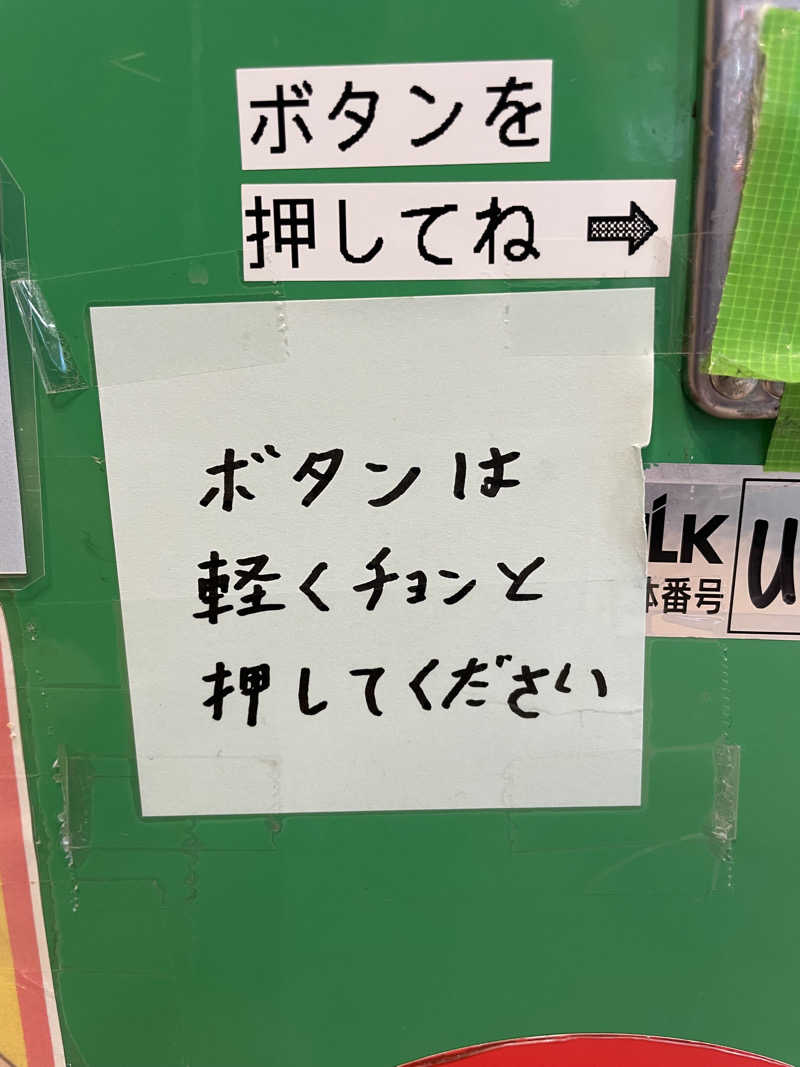 ボタンを
押してね ➡
ボタンは
軽くチョンと
押してください
LK
番号
U